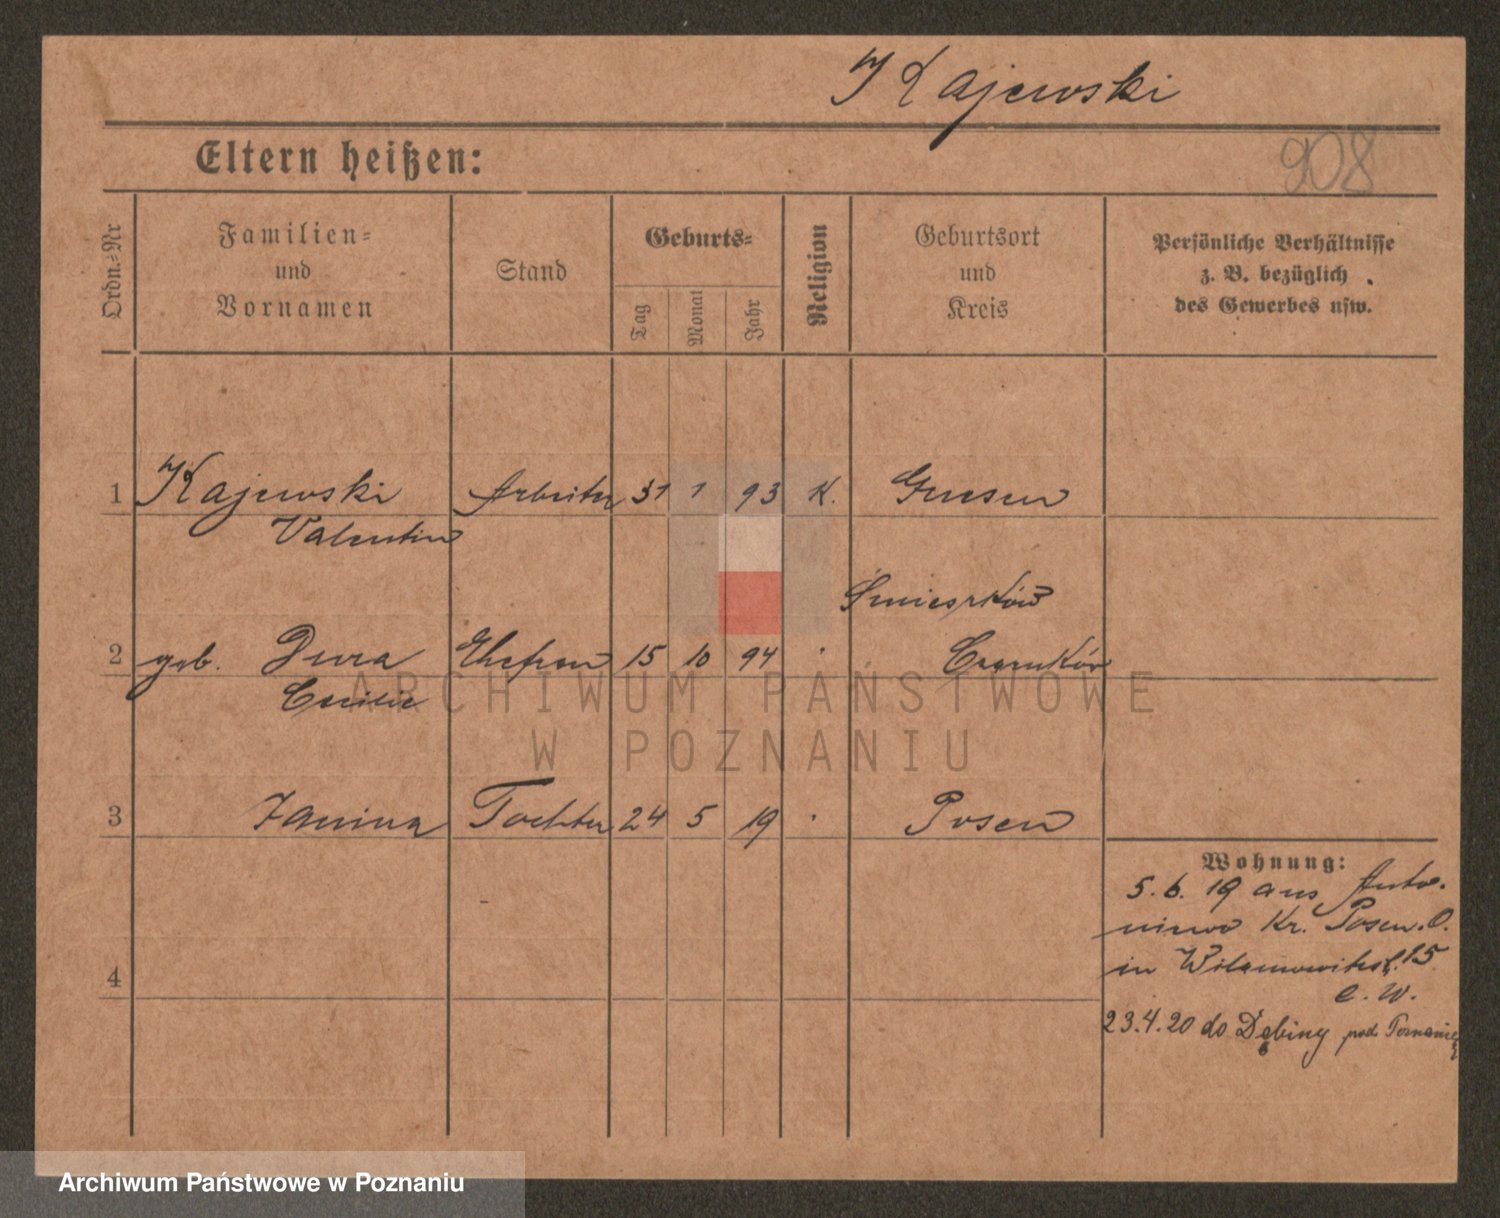 Kajewski
Eltern heißen:
908
Ordn.=Nr
Familien=
und
Vornamen
Stand
Geburts=
Tag
Monat
Jahr
Religion
Geburtsort
und
Kreis
Persönliche Verhältnisse
z. B. bezüglich
des Gewerbes usw.
1 Kajewski Arbeiter 31 1 93 K. Gnesen
Valentin
Śmieszków
2 geb. Dura Ehefrau 15 10 94 Czarnków
Cecilie
ARCHIWUM PAŃSTWOWE
W POZNANIU
3 Janina Tochter 24 5 19 Posen
Wohnung:
5.6.19 aus Anto-
niewo Kr. Posen. O.
in 15
e. W.
4
23.4.20 do Dębiny pod Poznanię
Archiwum Państwowe w Poznaniu